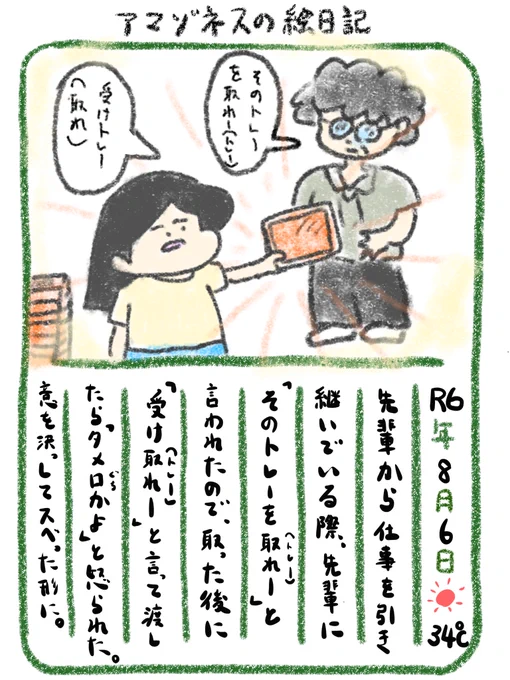 アマゾネスの絵日記
そのトレー
を取れー(トレー)
受けトレー
(取れ)
R6年8月6日 34℃
先輩から仕事を引き
継いでいる際、先輩に
「そのトレーを取れー(トレー)」と
言われたので、取った後に
「受け取れー(トレー)」と言って渡し
たら「タメ口かよ」と怒られた。
意を決してスベった形に。